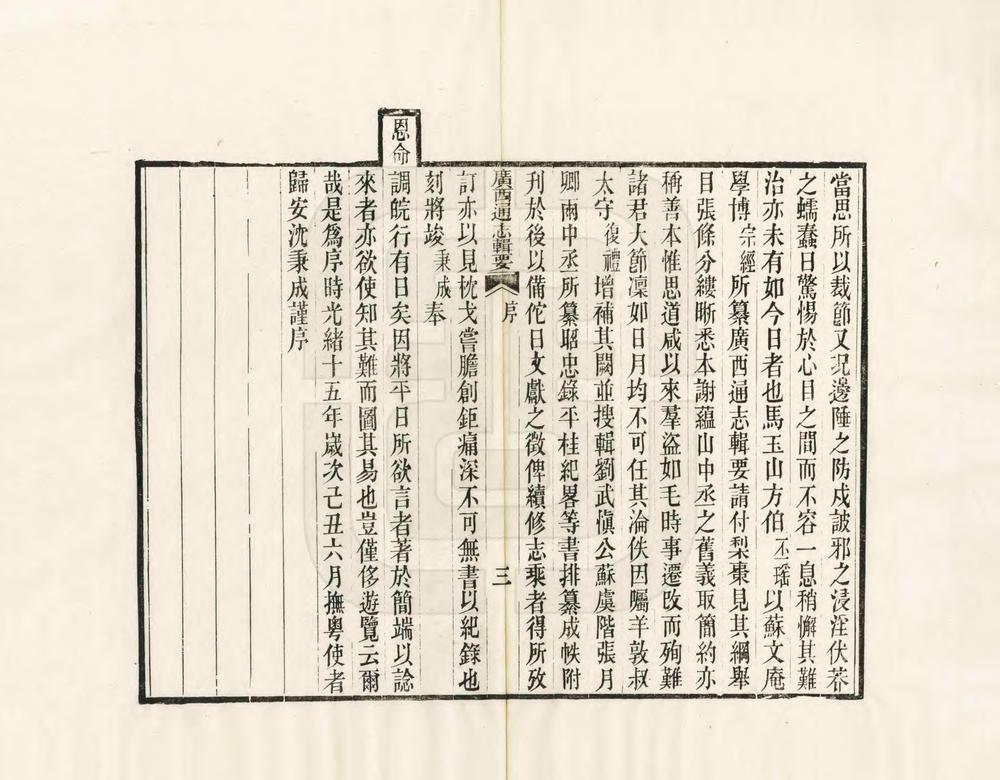 當思所以裁節又況邊陲之防戍詖邪之浸淫伏莽
之蠕蠢日驚惕於心目之間而不容一息稍懈其難
治亦未有如今日者也馬玉山方伯丕瑶以蘇文庵
學博宗經所纂廣西通志輯要請付梨棗見其綱舉
目張條分縷晰悉本謝蘊山中丞之舊義取簡約亦
稱善本惟思道咸以來羣盜如毛時事遷改而殉難
諸君大節凜如日月均不可任其淪佚因囑羊敦叔
太守復禮增補其闕並搜輯劉武愼公蘇虞階張月
卿兩中丞所纂昭忠錄平桂紀畧等書排纂成帙附
刋於後以備佗日文獻之徵俾續修志乘者得所攷
廣西通志輯要 序 三
訂亦以見枕戈嘗膽創鉅痛深不可無書以紀錄也
刻將竣秉成奉
恩命
調皖行有日矣因將平日所欲言者著於簡端以諗
來者亦欲使知其難而圖其易也豈僅侈遊覽云爾
哉是爲序時光緒十五年嵗次己丑六月撫粵使者
歸安沈秉成謹序